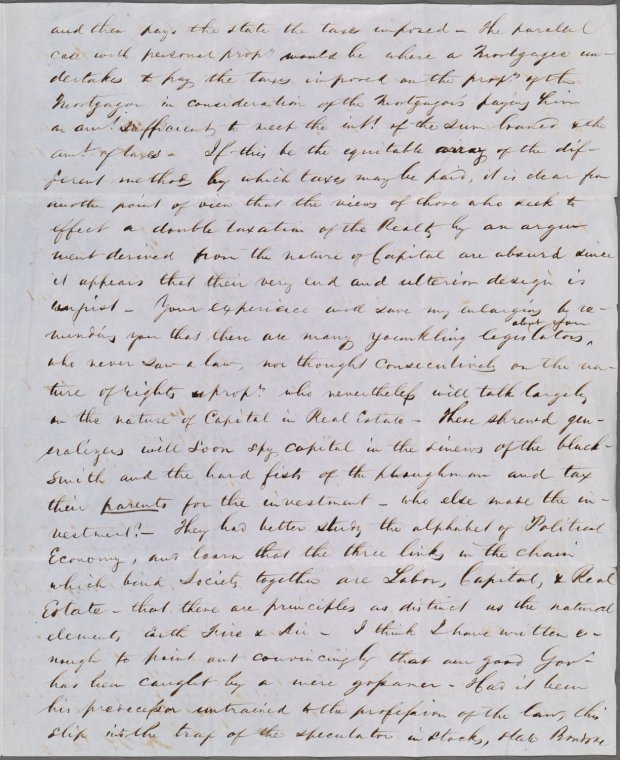 and then pays the state the taxes imposed – The paralel
case with personal propy would be where a Mortgagee un-
dertakes to pay the taxes imposed on the propy of the
Mortgagor in consideration of the Mortgagors paying him
an amt. sufficient to meet the int. of the sum loaned & the
amt. of taxes – If this be the equitable array of the dif-
ferent methods by which taxes may be paid, it is clear from
another point of view that the views of those who seek to
effect a double taxation of the Realty by an argu
ment derived from the nature of Capital are absurd since
it appears that their very end and ulterior design is
unjust – Your experience will save my enlarging by re-
minding you that there are many younkling legislators,
who never saw a law, nor thought consecutively on the na-
ture of rights & propy. who nevertheless will talk largely
on the nature of Capital in Real Estate – These shrewd gen-
eralizers will soon spy capital in the sinews of the black-
smith and the hard fists of the ploughman and tax
their parents for the investment – who else made the in-
vestment? – They had better study the alphabet of Political
Economy, and learn that the three links in the chain
which bind Society together are Labor, Capital, & Real
Estate – that these are principles as distinct as the natural
elements Earth Fire & Air – I think I have written e-
nough to point out convincingly that our good Govr
has been caught by a mere gossamer – Had it been
his predecessor untrained to the profession of the law, this
slip into the trap of the speculator in stocks, state Bonds &c